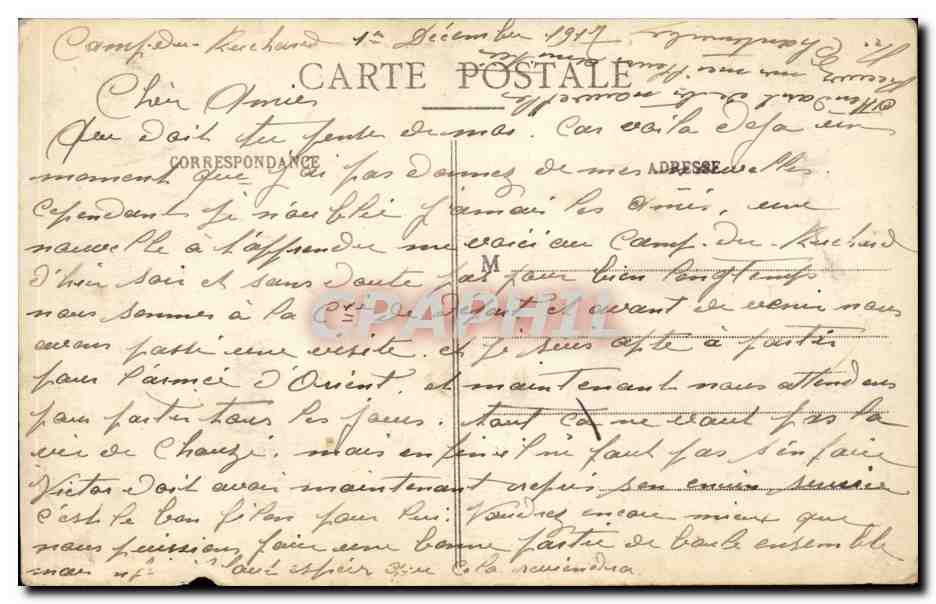 Camp-du-Ruchard 1er Décembre 1917
CARTE POSTALE
Cher Amies
Que doit tu pense de moi. Car voila deja un
CORRESPONDANCE
ADRESSE
moment que j'ai pas donnez de mes nouvelles.
Cependant je n'oublie jamais les amis, une
nouvelle à t'apprendre me voici au Camp-du-Ruchard
M
d'hier soir et sans doute pas pour bien longtemps
nous sommes à la Cie de départ et avant de venir nous
CPAPHIL
avons passé une visite. et je suis apte à partir
pour l'armée d'Orient et maintenant nous attendons
pour partir tous les jours. tout ça ne vaut pas la
vie de Chanzi. mais enfin il ne faut pas s'en faire
Victor doit avoir maintenant repris son ancien service
c'est le bon filon pour lui. Vaudrez encore mieux que
nous puissions faire une bonne partie de boule ensemble
mais espoir que cela reviendra.